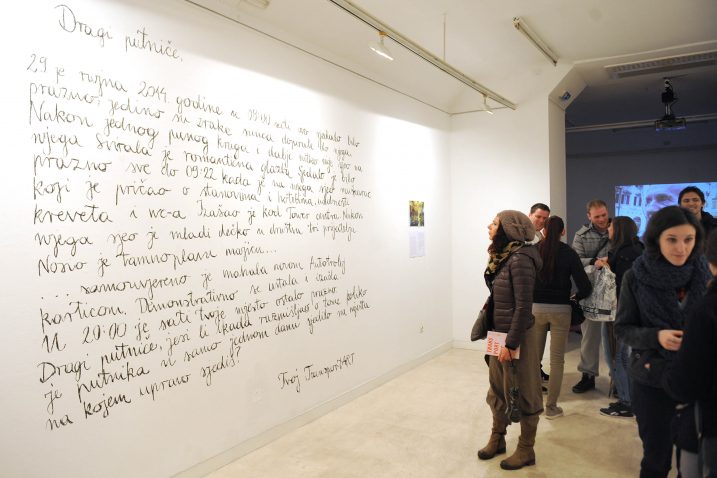 Dragi putniče,
29 je rujna 2014. godine u 09:00 sati ovo sjedalo bilo
prazno, jedino su zrake sunca dopirale do njega.
Nakon jednog punog kruga i dalje nitko nije sjeo na
njega. Svirala je romantična glazba. Sjedalo je bilo
prazno sve do 09:22 kada je na njega sjeo muškarac
koji je pričao o stanovima i hotelima, udobnosti
kreveta i wc-a. Izašao je kod Tower centra. Nakon
njega sjeo je mladi dečko u društvu tri prijatelja.
Nosio je tamnoplavu majicu...
... samouvjereno je mahala novom Autotrolej
karticom. Demonstrativno se ustala i izašla.
U 29:00 je sati tvoje mjesto ostalo prazno.
Dragi putniče, jesi li ikada razmišljao o tome koliko
je putnika u samo jednom danu sjedilo na mjestu
na kojem upravo sjediš?
Tvoj TransportART
TRANS
PORT